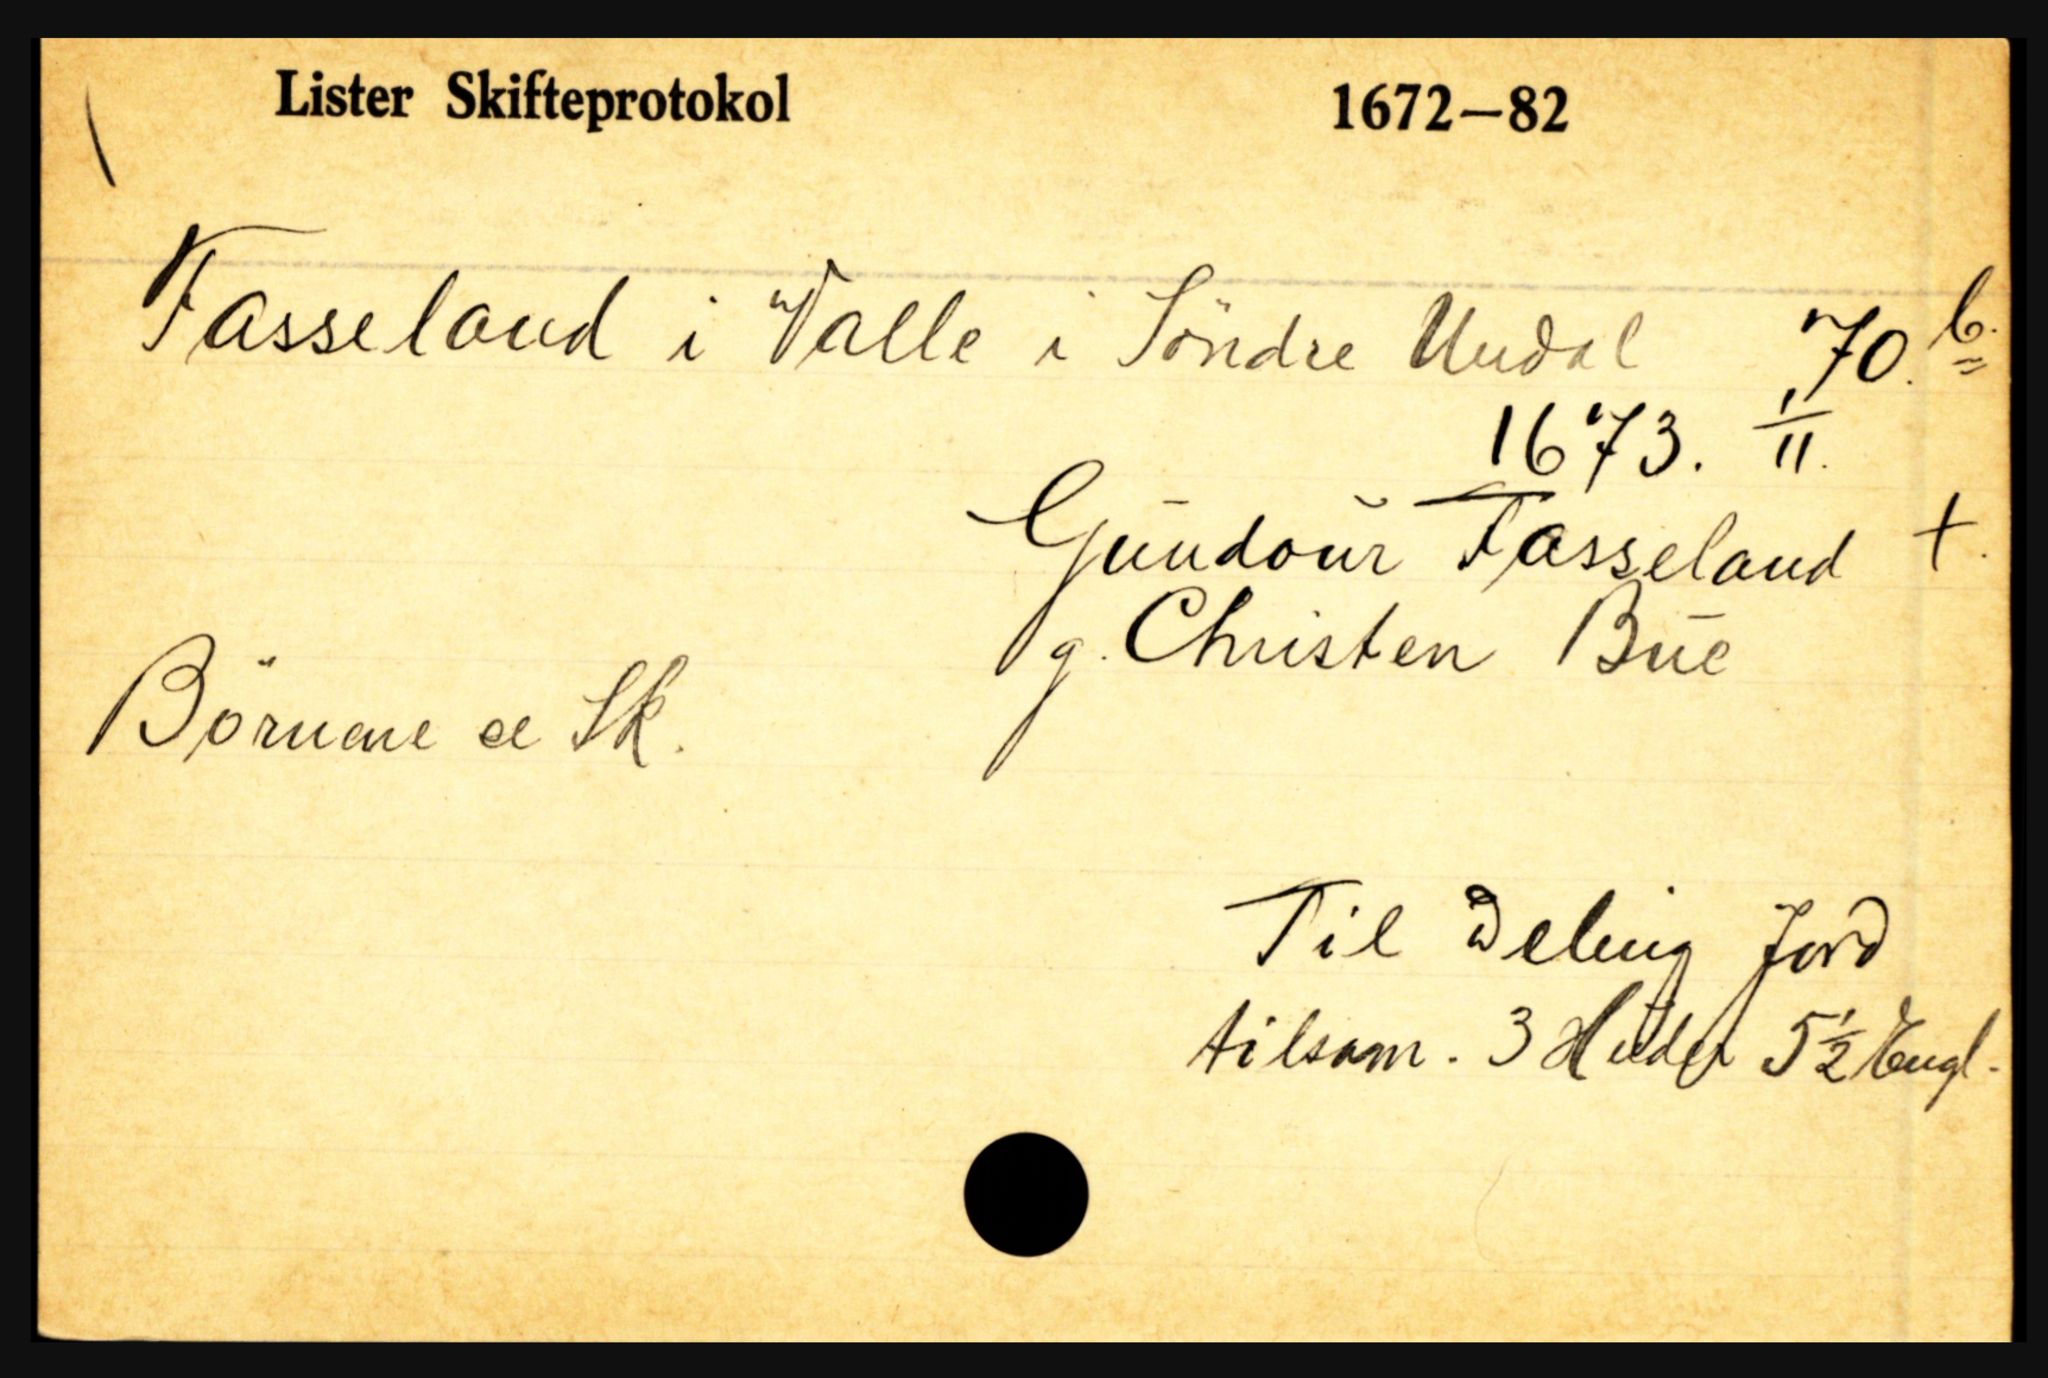 Lister Skifteprotokol 1672–82
Tasseland i Valle i Söndre Undal 70.b.
1673. 1/11.
Gundour Tasseland +.
g. Christen Bue
Börnene se Sk.
Til Deling Jord
tilsam. 3 Huder 5½ Engl.